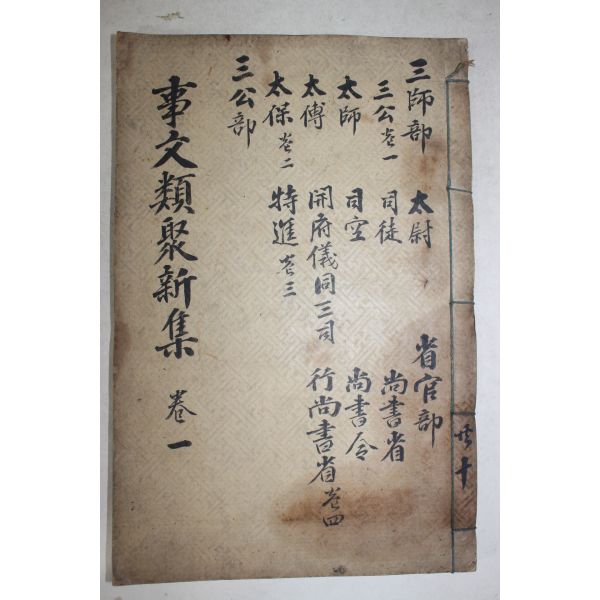 事文類聚新集 卷一
三師部
三公卷一
太師
太傅
太保卷二
三公部
太尉
司徒
司空
開府儀同三司
特進卷三
省官部
尚書省
尚書令
行尚書省卷四
共十